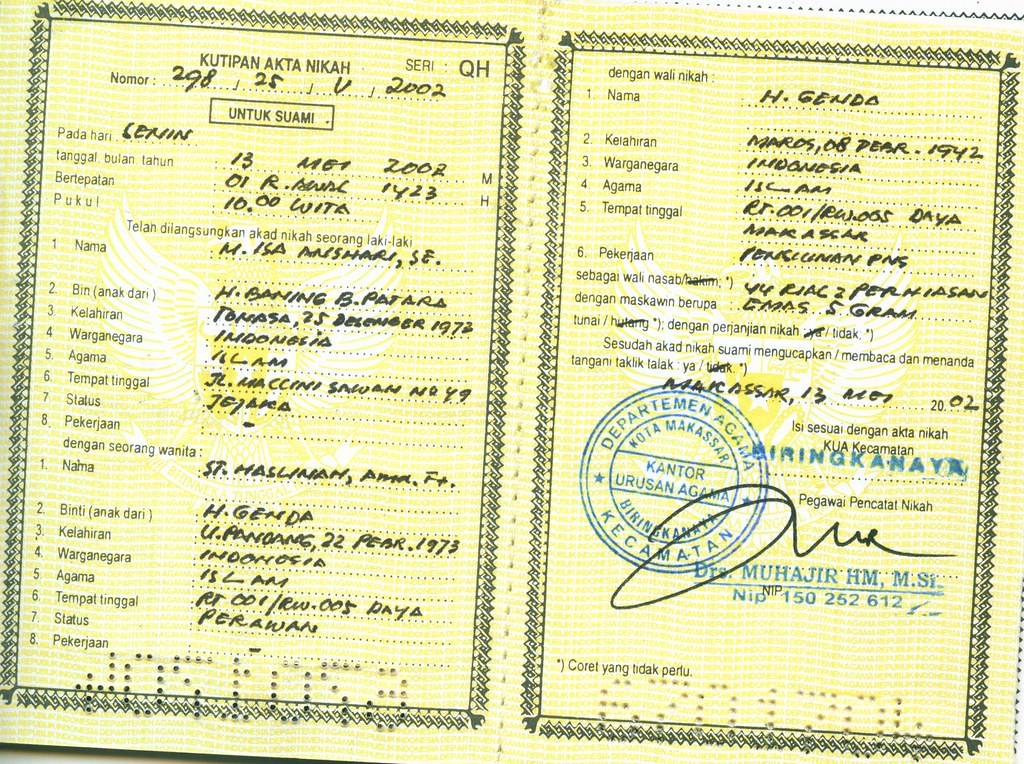 KUTIPAN AKTA NIKAH SERI : QH
Nomor : 298 / 25 / V / 2002
UNTUK SUAMI
Pada hari SENIN
tanggal, bulan, tahun 13 MEI 2002 M
Bertepatan 01 R. AWAL 1423 H
Pukul 10.00 WITA
Telah dilangsungkan akad nikah seorang laki-laki
1 Nama : M. ISA ANSHARI, SE.
2. Bin (anak dari) : H. BANING B. PATARA
3. Kelahiran : 25 DESEMBER 1972
4. Warganegara : INDONESIA
5. Agama : ISLAM
6. Tempat tinggal : JL. MACCINI SAWAH NO 49
7 Status : JEJAKA
8. Pekerjaan : -
dengan seorang wanita :
1. Nama : ST. MASLINAH,
2. Binti (anak dari) : H. GENDA
3. Kelahiran : U. PANDANG, 22 PEBR. 1973
4. Warganegara : INDONESIA
5. Agama : ISLAM
6. Tempat tinggal : RT 001/RW.005 DAYA
7. Status : PERAWAN
8. Pekerjaan : -
dengan wali nikah :
1. Nama : H. GENDA
2. Kelahiran : MAROS, 08 PEBR. 1942
3. Warganegara : INDONESIA
4. Agama : ISLAM
5. Tempat tinggal : RT.001/RW.005 DAYA
MAKASSAR
6. Pekerjaan : PENSIUNAN PNS
sebagai wali nasab/hakim; *) 44 RIAL 2 PERHIASAN
dengan maskawin berupa : EMAS 5 GRAM
tunai / hutang *); dengan perjanjian nikah : ya / tidak. *)
Sesudah akad nikah suami mengucapkan / membaca dan menanda
tangani taklik talak : ya / tidak. *)
MAKASSAR, 13 MEI 20.02
Isi sesuai dengan akta nikah
KUA Kecamatan
BIRINGKANAYA
Pegawai Pencatat Nikah
DEPARTEMEN AGAMA
KOTA MAKASSAR
KANTOR
URUSAN AGAMA
BIRINGKANAYA
KECAMATAN
Drs. MUHAJIR HM, M.Si.
NIP.
Nip 150 252 612
*) Coret yang tidak perlu.